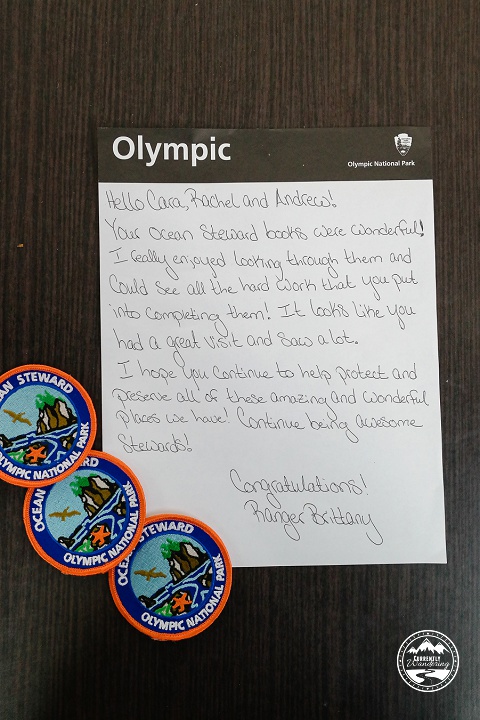 Olympic
Olympic National Park
Hello Cara, Rachel and Andrew!
Your Ocean Steward books were wonderful!
I really enjoyed looking through them and
could see all the hard work that you put
into completing them! It looks like you
had a great visit and saw a lot.
I hope you continue to help protect and
preserve all of these amazing and wonderful
places we have! Continue being awesome
Stewards!
Congratulations!
Ranger Brittany
OCEAN STEWARD
OLYMPIC NATIONAL PARK
OCEAN STEWARD
OLYMPIC NATIONAL PARK
OCEAN STEWARD
OLYMPIC NATIONAL PARK
CURRENTLY
Wandering